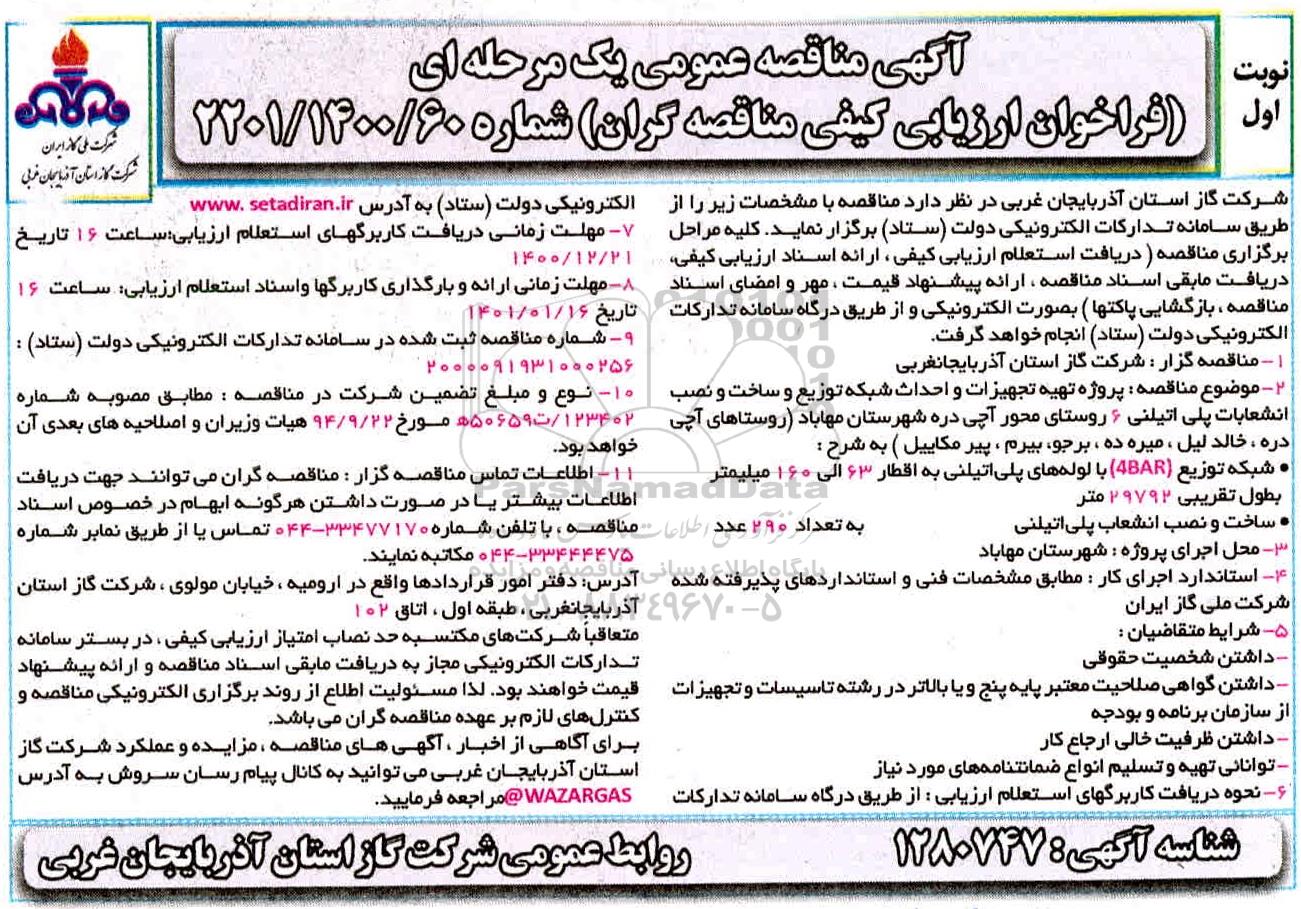 نوبت
اول
آگهی مناقصه عمومی یک مرحله ای
(فراخوان ارزیابی کیفی مناقصه گران) شماره ۲۲۰۱/۱۴۰۰/۶۰
شرکت ملی گاز ایران
شرکت گاز استان آذربایجان غربی
شرکت گاز استان آذربایجان غربی در نظر دارد مناقصه با مشخصات زیر را از
طریق سامانه تدارکات الکترونیکی دولت (ستاد) برگزار نماید. کلیه مراحل
برگزاری مناقصه ( دریافت استعلام ارزیابی کیفی ، ارائه اسناد ارزیابی کیفی،
دریافت مابقی اسناد مناقصه ، ارائه پیشنهاد قیمت ، مهر و امضای اسناد
مناقصه ، بازگشایی پاکتها ) بصورت الکترونیکی و از طریق درگاه سامانه تدارکات
الکترونیکی دولت (ستاد) انجام خواهد گرفت.
۱- مناقصه گزار : شرکت گاز استان آذربایجانغربی
۲- موضوع مناقصه : پروژه تهیه تجهیزات و احداث شبکه توزیع و ساخت و نصب
انشعابات پلی اتیلنی ۶ روستای محور آچی دره شهرستان مهاباد (روستاهای آچی
دره ، خالد لیل ، میره ده ، برجو، بیرم ، پیر مکاییل ) به شرح :
• شبکه توزیع (4BAR) با لوله‌های پلی‌اتیلنی به اقطار ۶۳ الی ۱۶۰ میلیمتر
بطول تقریبی ۲۹۷۹۲ متر
• ساخت و نصب انشعاب پلی‌اتیلنی به تعداد ۲۹۰ عدد
۳- محل اجرای پروژه : شهرستان مهاباد
۴- استاندارد اجرای کار : مطابق مشخصات فنی و استانداردهای پذیرفته شده
شرکت ملی گاز ایران
۵- شرایط متقاضیان :
- داشتن شخصیت حقوقی
- داشتن گواهی صلاحیت معتبر پایه پنج و یا بالاتر در رشته تاسیسات و تجهیزات
از سازمان برنامه و بودجه
- داشتن ظرفیت خالی ارجاع کار
- توانائی تهیه و تسلیم انواع ضمانتنامه‌های مورد نیاز
۶- نحوه دریافت کاربرگهای استعلام ارزیابی : از طریق درگاه سامانه تدارکات
الکترونیکی دولت (ستاد) به آدرس www. setadiran.ir
۷- مهلت زمانی دریافت کاربرگهای استعلام ارزیابی:ساعت ۱۶ تاریخ
۱۴۰۰/۱۲/۲۱
۸- مهلت زمانی ارائه و بارگذاری کاربرگها واسناد استعلام ارزیابی: ساعت ۱۶
تاریخ ۱۴۰۱/۰۱/۱۶
۹- شماره مناقصه ثبت شده در سامانه تدارکات الکترونیکی دولت (ستاد) :
۲۰۰۰۰۹۱۹۳۱۰۰۰۲۵۶
۱۰- نوع و مبلغ تضمین شرکت در مناقصه : مطابق مصوبه شماره
۱۲۳۴۰۲/ت۵۰۶۵۹ه مورخ ۹۴/۹/۲۲ هیات وزیران و اصلاحیه های بعدی آن
خواهد بود.
۱۱- اطلاعات تماس مناقصه گزار : مناقصه گران می توانند جهت دریافت
اطلاعات بیشتر یا در صورت داشتن هرگونه ابهام در خصوص اسناد
مناقصه ، با تلفن شماره ۳۳۴۷۷۱۷۰-۰۴۴ تماس یا از طریق نمابر شماره
۳۳۴۴۴۴۷۵-۰۴۴ مکاتبه نمایند.
آدرس: دفتر امور قراردادها واقع در ارومیه ، خیابان مولوی ، شرکت گاز استان
آذربایجانغربی ، طبقه اول ، اتاق ۱۰۲
متعاقباً شرکت‌های مکتسبه حد نصاب امتیاز ارزیابی کیفی ، در بستر سامانه
تدارکات الکترونیکی مجاز به دریافت مابقی اسناد مناقصه و ارائه پیشنهاد
قیمت خواهند بود. لذا مسئولیت اطلاع از روند برگزاری الکترونیکی مناقصه و
کنترل‌های لازم بر عهده مناقصه گران می باشد.
برای آگاهی از اخبار ، آگهی های مناقصه ، مزایده و عملکرد شرکت گاز
استان آذربایجان غربی می توانید به کانال پیام رسان سروش به آدرس
@WAZARGAS مراجعه فرمایید.
ParsNamadData
پایگاه اطلاع رسانی مناقصه و مزایده
۰۲۱-۸۸۳۴۹۶۷۰-۵
شناسه آگهی : ۱۲۸۰۷۴۷
روابط عمومی شرکت گاز استان آذربایجان غربی